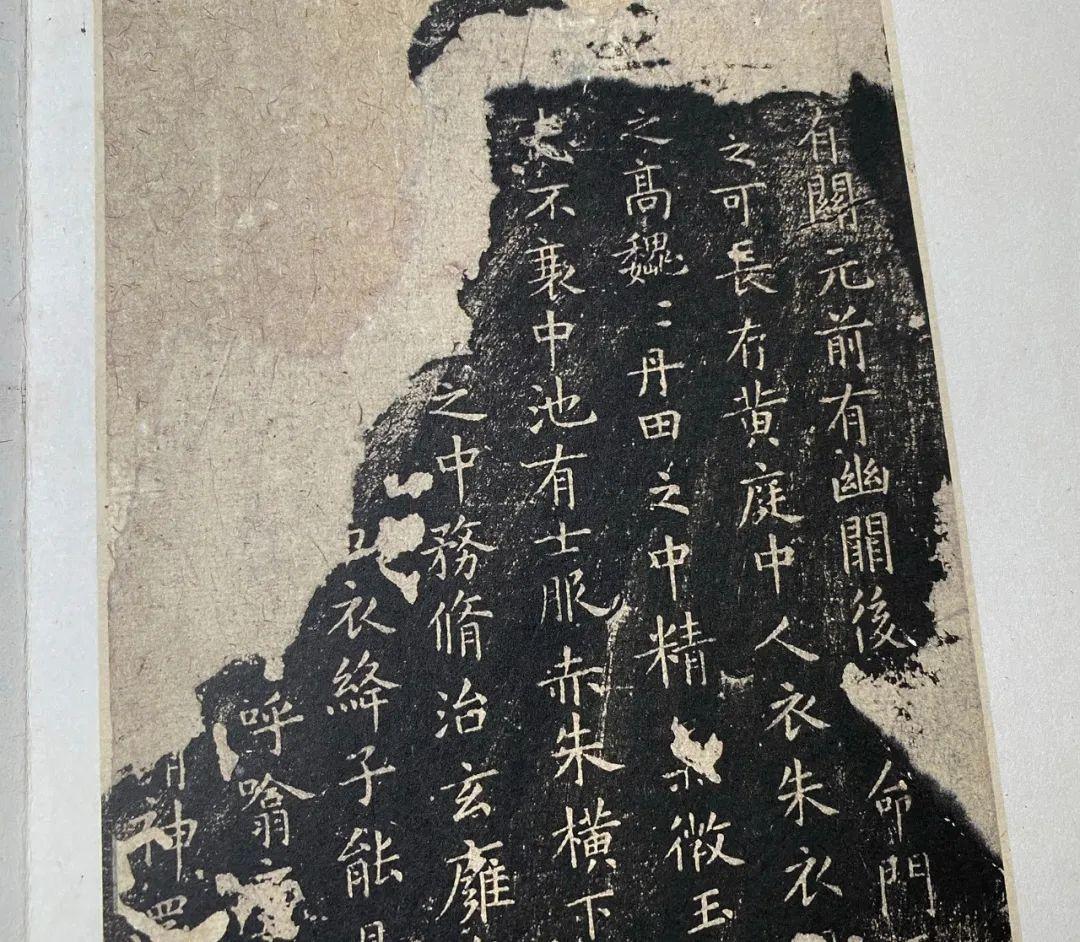 有關元前有幽闕後命門
之可長存黃庭中人衣朱衣
之高巍〻丹田之中精微玉
志不衰中池有士服赤朱橫下
之中務脩治玄廱
衣絳子能
呼噏
神